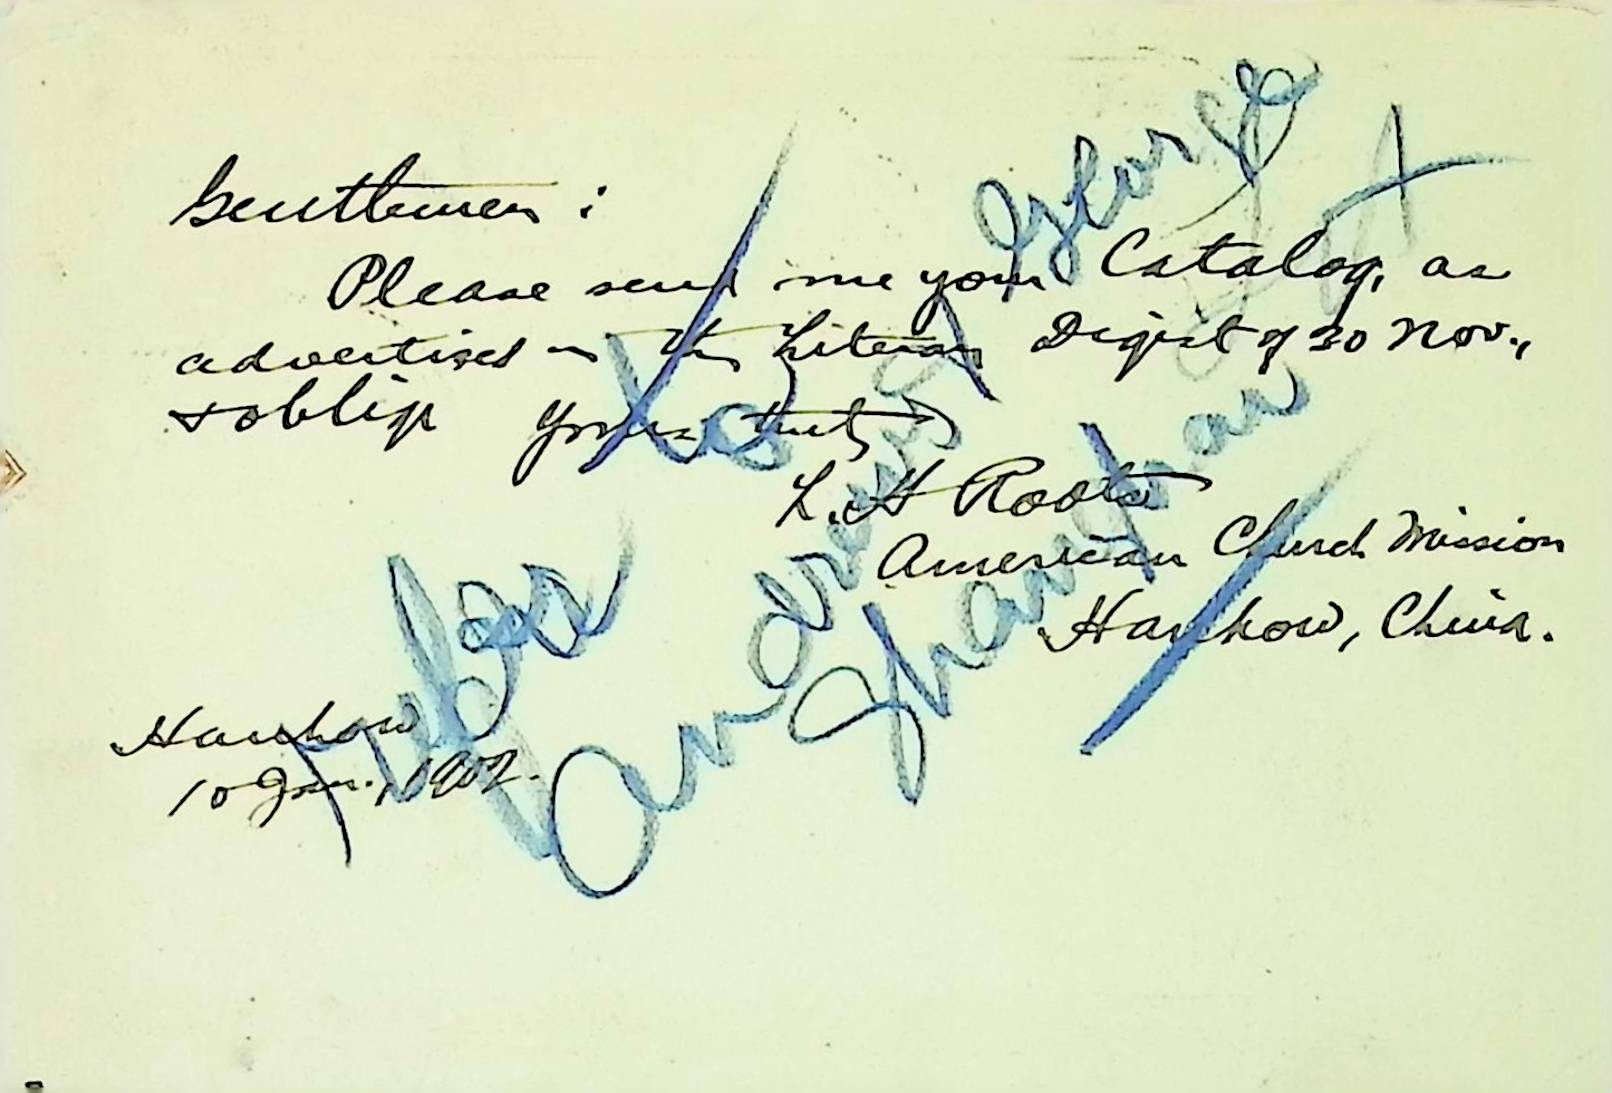 Gentlemen :
Please send me your Catalog, as
advertised in the Literary Digest of 30 Nov.,
& oblige Yours truly
L. H Roots
American Church Mission
Hankow, China.
Hankow
10 Jan., 1902.
George
Andrews
Shanghai